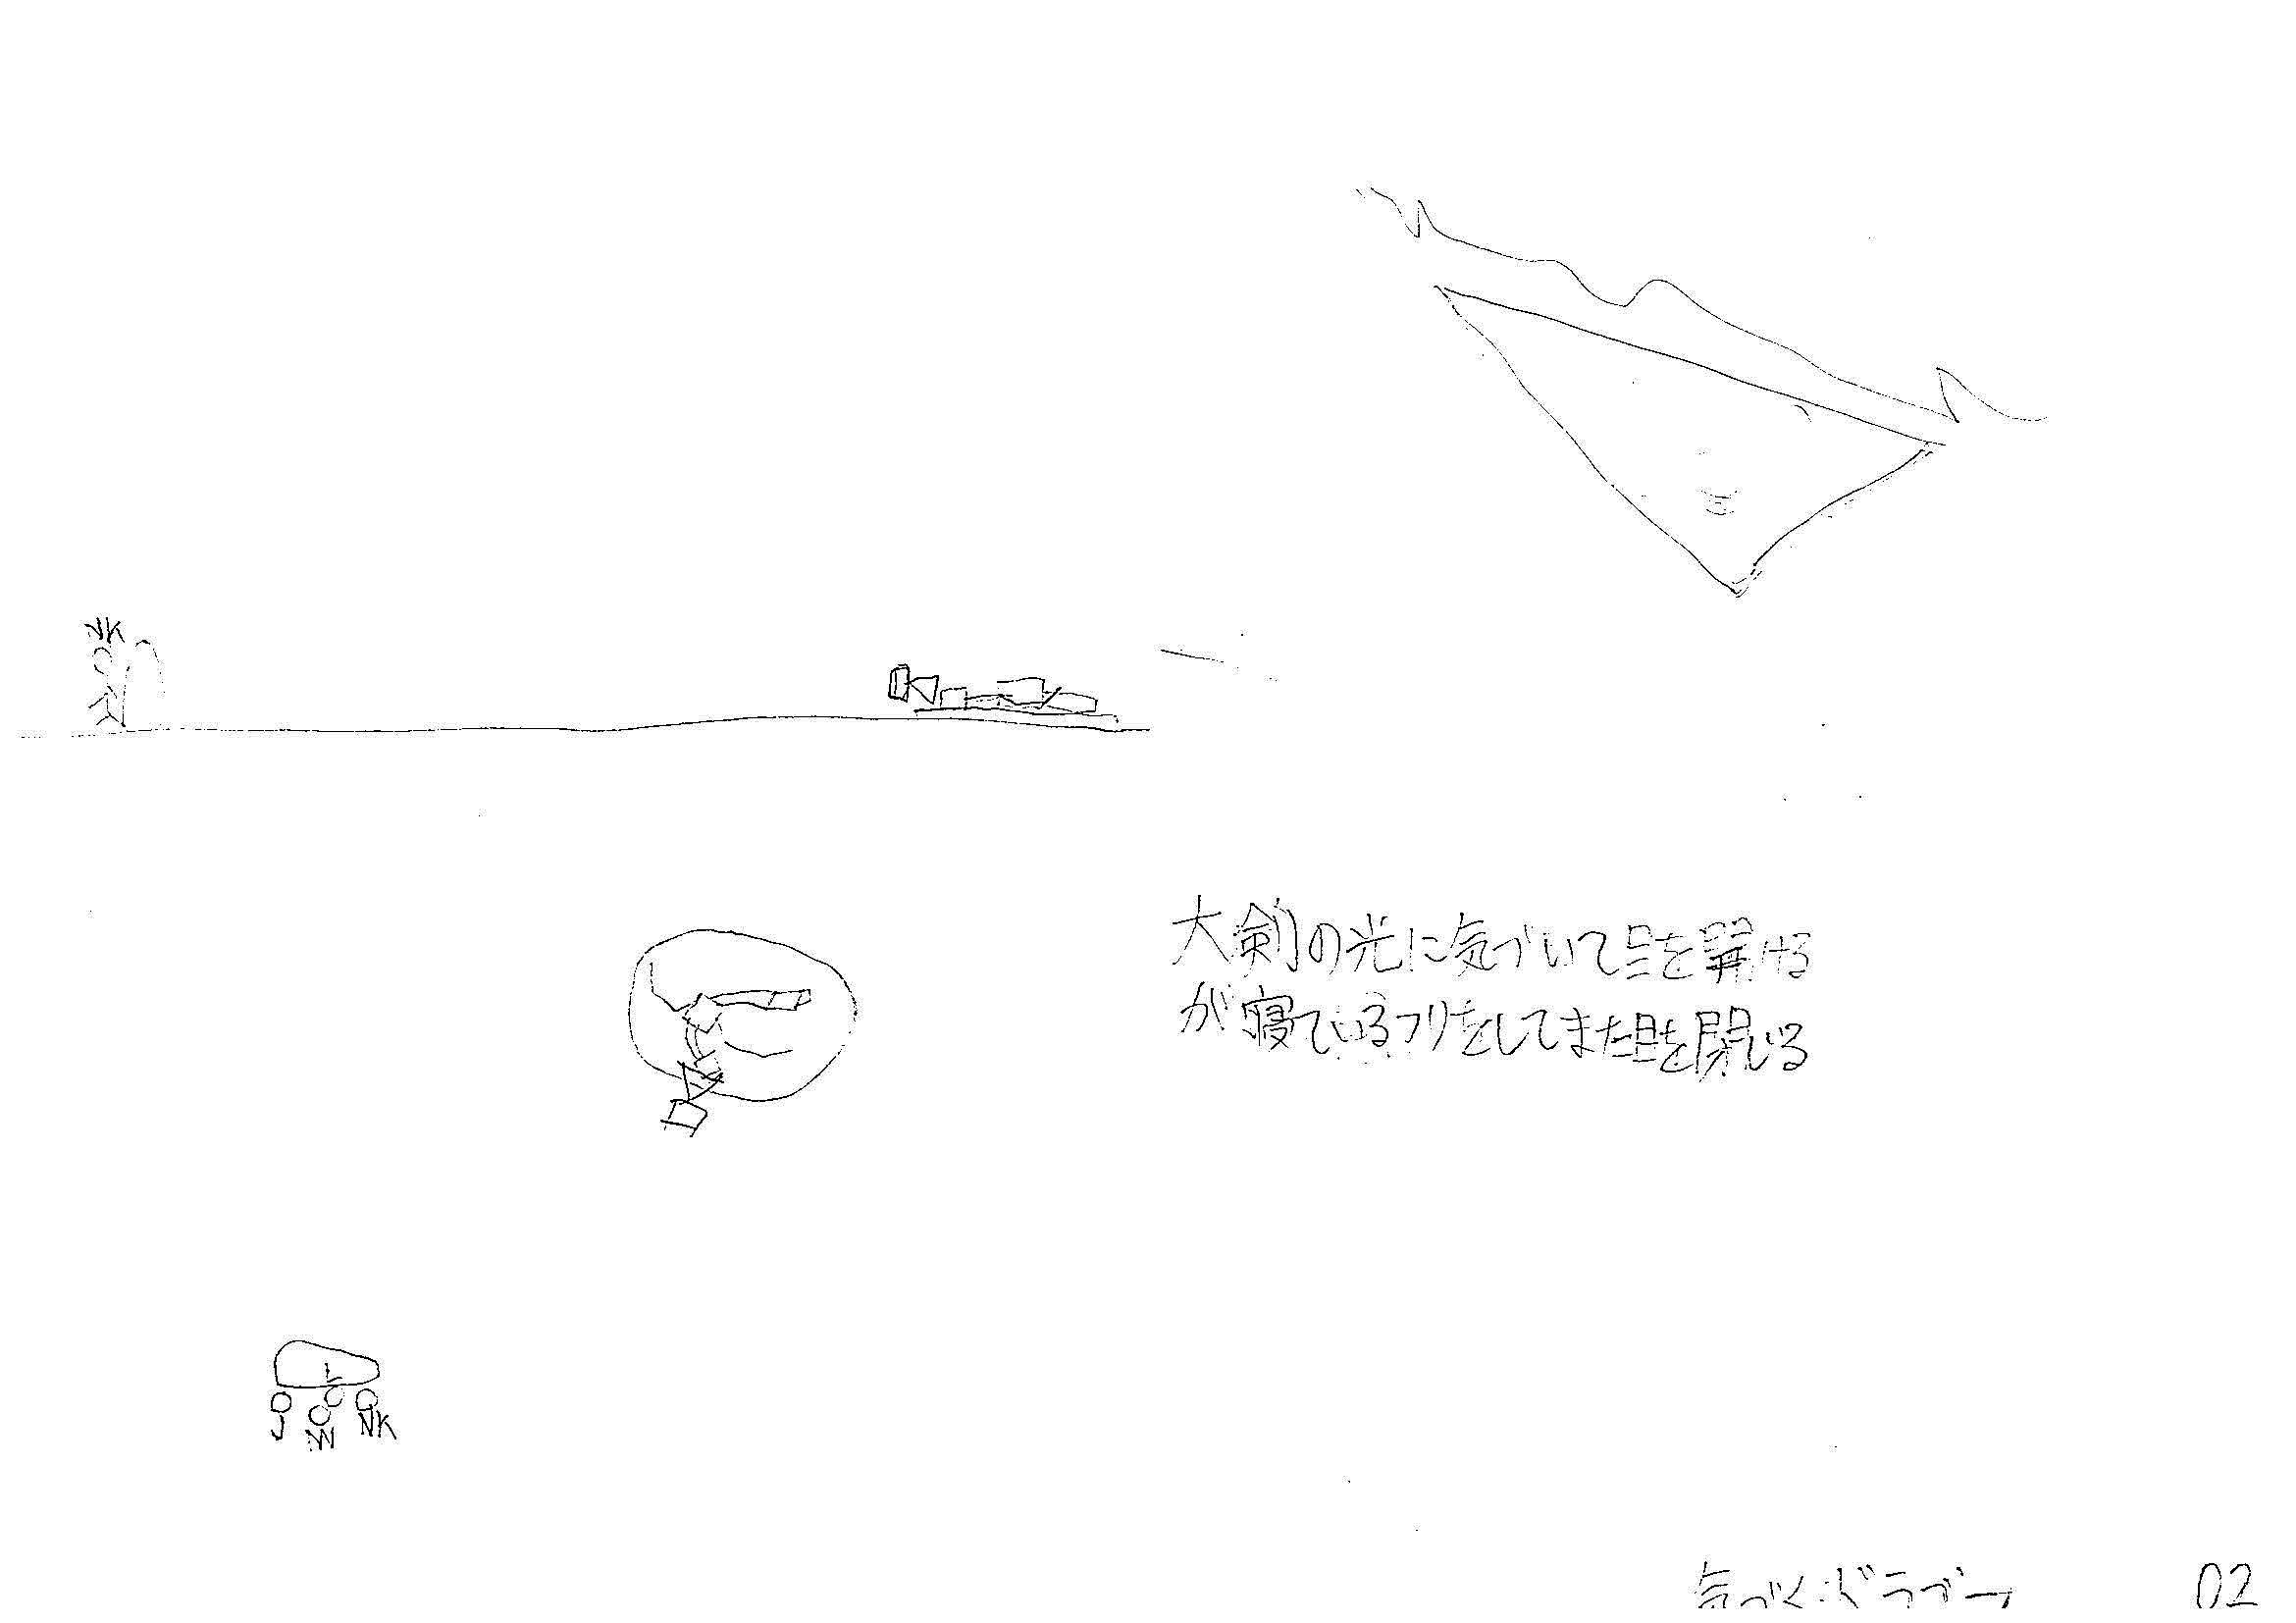 NK
大剣の光に気づいて目を開ける
が寝ているフリをしてまた目を閉じる
L
J NN NK
気づくドラゴン 02